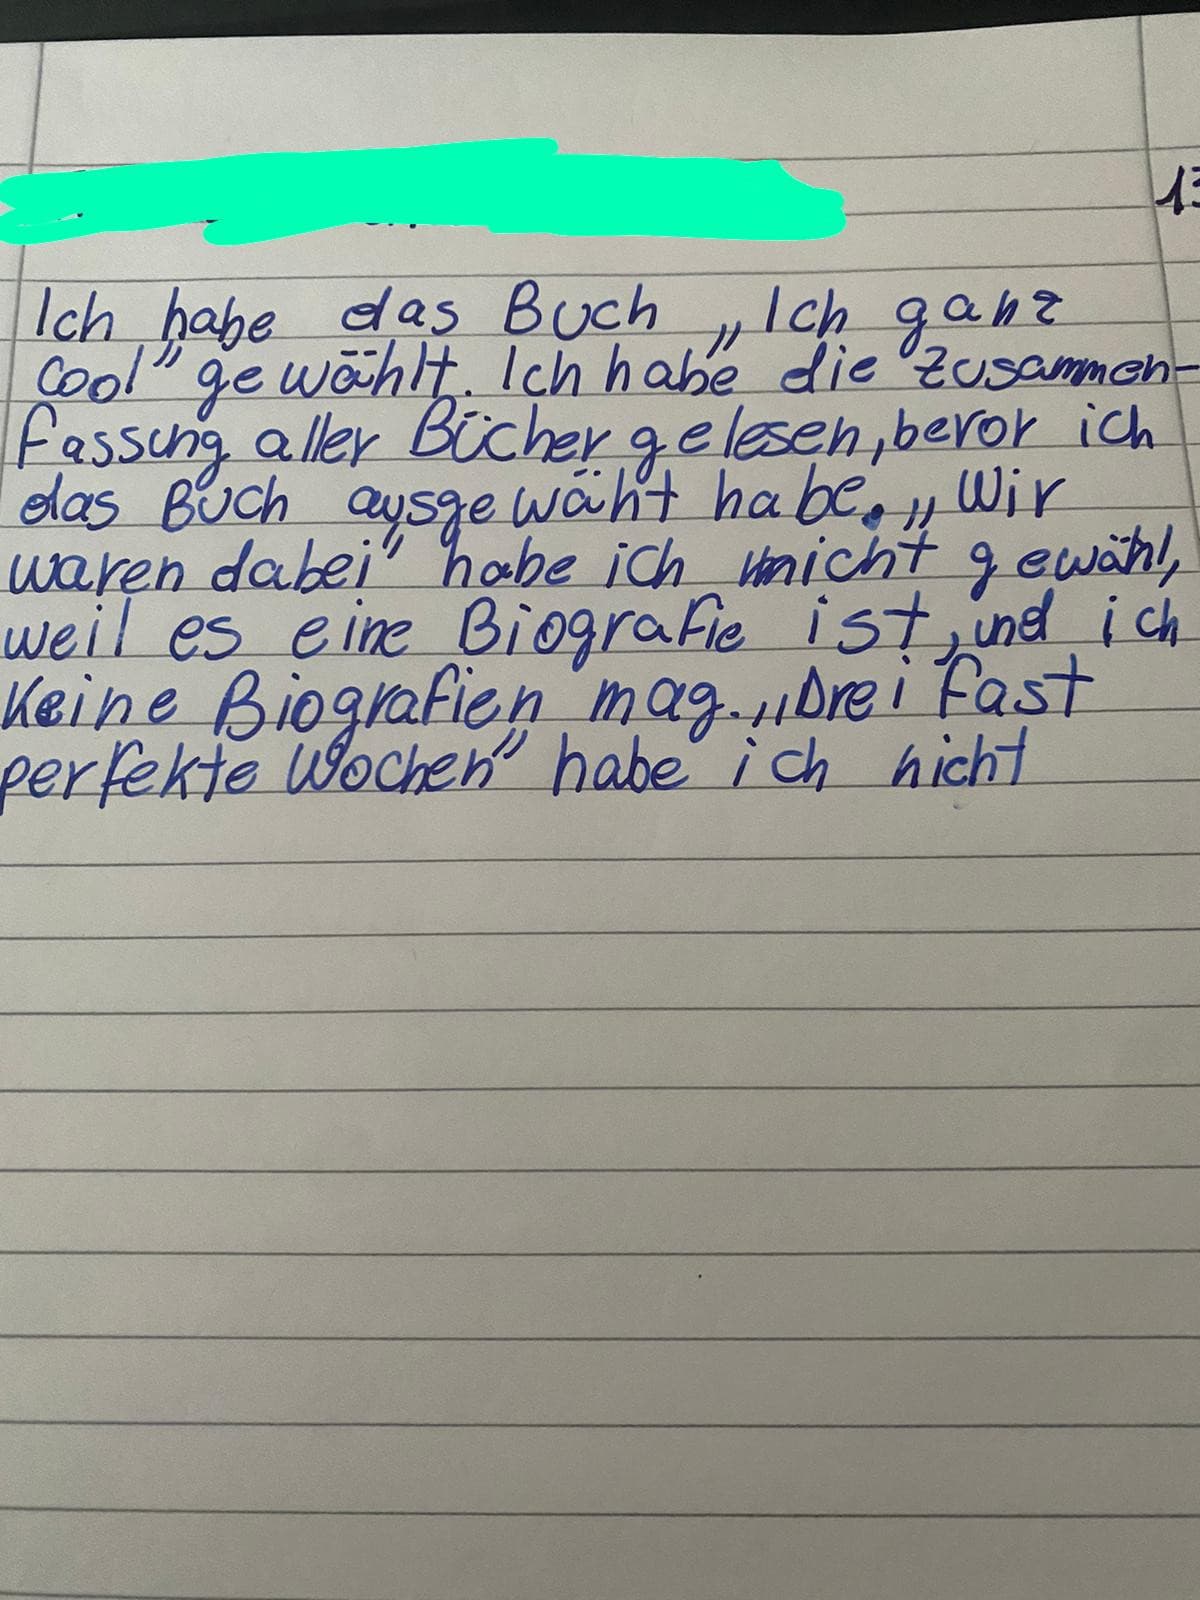 13
Ich habe das Buch „Ich ganz
cool" gewählt. Ich habe die Zusammen-
fassung aller Bücher gelesen, bevor ich
das Buch ausgewäht habe. „Wir
waren dabei" habe ich nicht gewähl,
weil es eine Biografie ist, und ich
keine Biografien mag. „Drei fast
perfekte Wochen" habe ich nicht